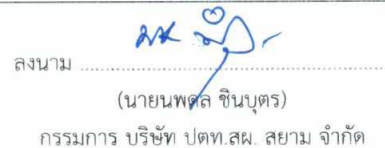 ลงนาม ........................................................
(นายนพดล ชินบุตร)
กรรมการ บริษัท ปตท.สผ. สยาม จำกัด